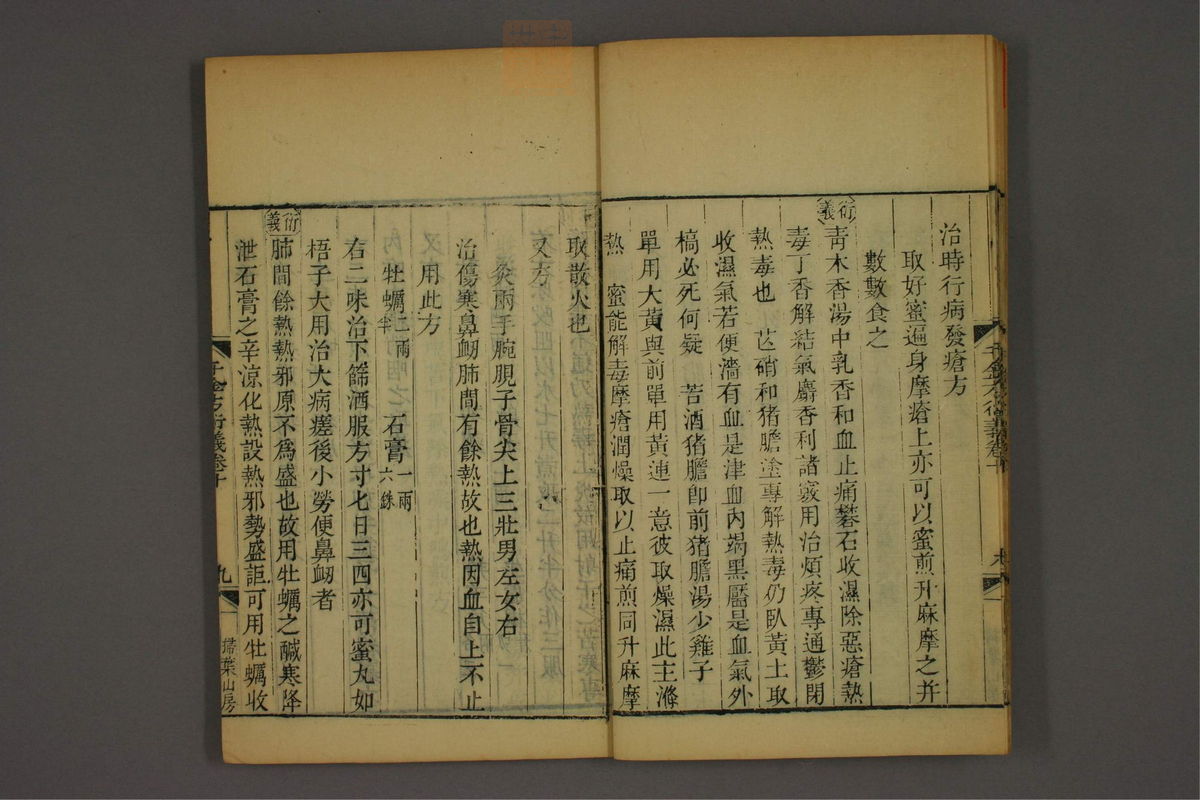 治時行病發瘡方
取好蜜遍身摩瘡上亦可以蜜煎升麻摩之并
數數食之
衍義
青木香湯中乳香和血止痛礬石收濕除惡瘡熱
毒丁香解結氣麝香利諸竅用治煩疼專通鬱閉
熱毒也 芒硝和猪膽塗專解熱毒仍臥黃土取
收濕氣若便濇有血是津血內竭黑靨是血氣外
槁必死何疑 苦酒猪膽卽前猪膽湯少雞子
單用大黃與前單用黃連一意彼取燥濕此主滌
熱 蜜能解毒摩瘡潤燥取以止痛煎同升麻摩
取散火也
又方
灸兩手腕䏚子骨尖上三壯男左女右
治傷寒鼻衂肺間有餘熱故也熱因血自上不止
用此方
牡蠣二兩半 石膏一兩六銖
右二味治下篩酒服方寸七日三四亦可蜜丸如
梧子大用治大病瘥後小勞便鼻衂者
衍義
肺間餘熱熱邪原不爲盛也故用牡蠣之鹹寒降
泄石膏之辛涼化熱設熱邪勢盛詎可用牡蠣收
千金方衍義卷十
九
掃葉山房